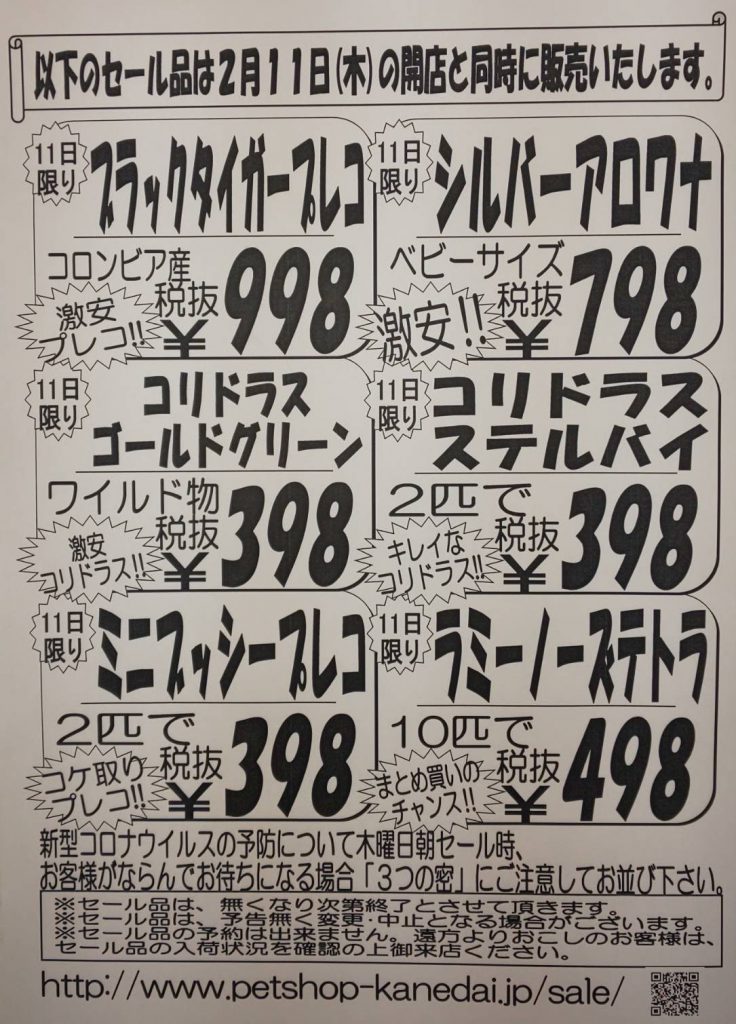 以下のセール品は２月１１日(木)の開店と同時に販売いたします。
11日
限り
ブラックタイガープレコ
コロンビア産
激安
プレコ!!
税抜
¥998
11日
限り
シルバーアロワナ
ベビーサイズ
激安!!
税抜
¥798
11日
限り
コリドラス
ゴールドグリーン
ワイルド物
激安
コリドラス!!
税抜
¥398
11日
限り
コリドラス
ステルバイ
2匹で
キレイな
コリドラス!!
税抜
¥398
11日
限り
ミニブッシープレコ
2匹で
コケ取り
プレコ!!
税抜
¥398
11日
限り
ラミーノーズテトラ
10匹で
まとめ買いの
チャンス!!
税抜
¥498
新型コロナウイルスの予防について木曜日朝セール時、
お客様がならんでお待ちになる場合「３つの密」にご注意してお並び下さい。
※セール品は、無くなり次第終了とさせて頂きます。
※セール品は、予告無く変更・中止となる場合がございます。
※セール品の予約は出来ません。遠方よりおこしのお客様は、
セール品の入荷状況を確認の上御来店ください。
http://www.petshop-kanedai.jp/sale/